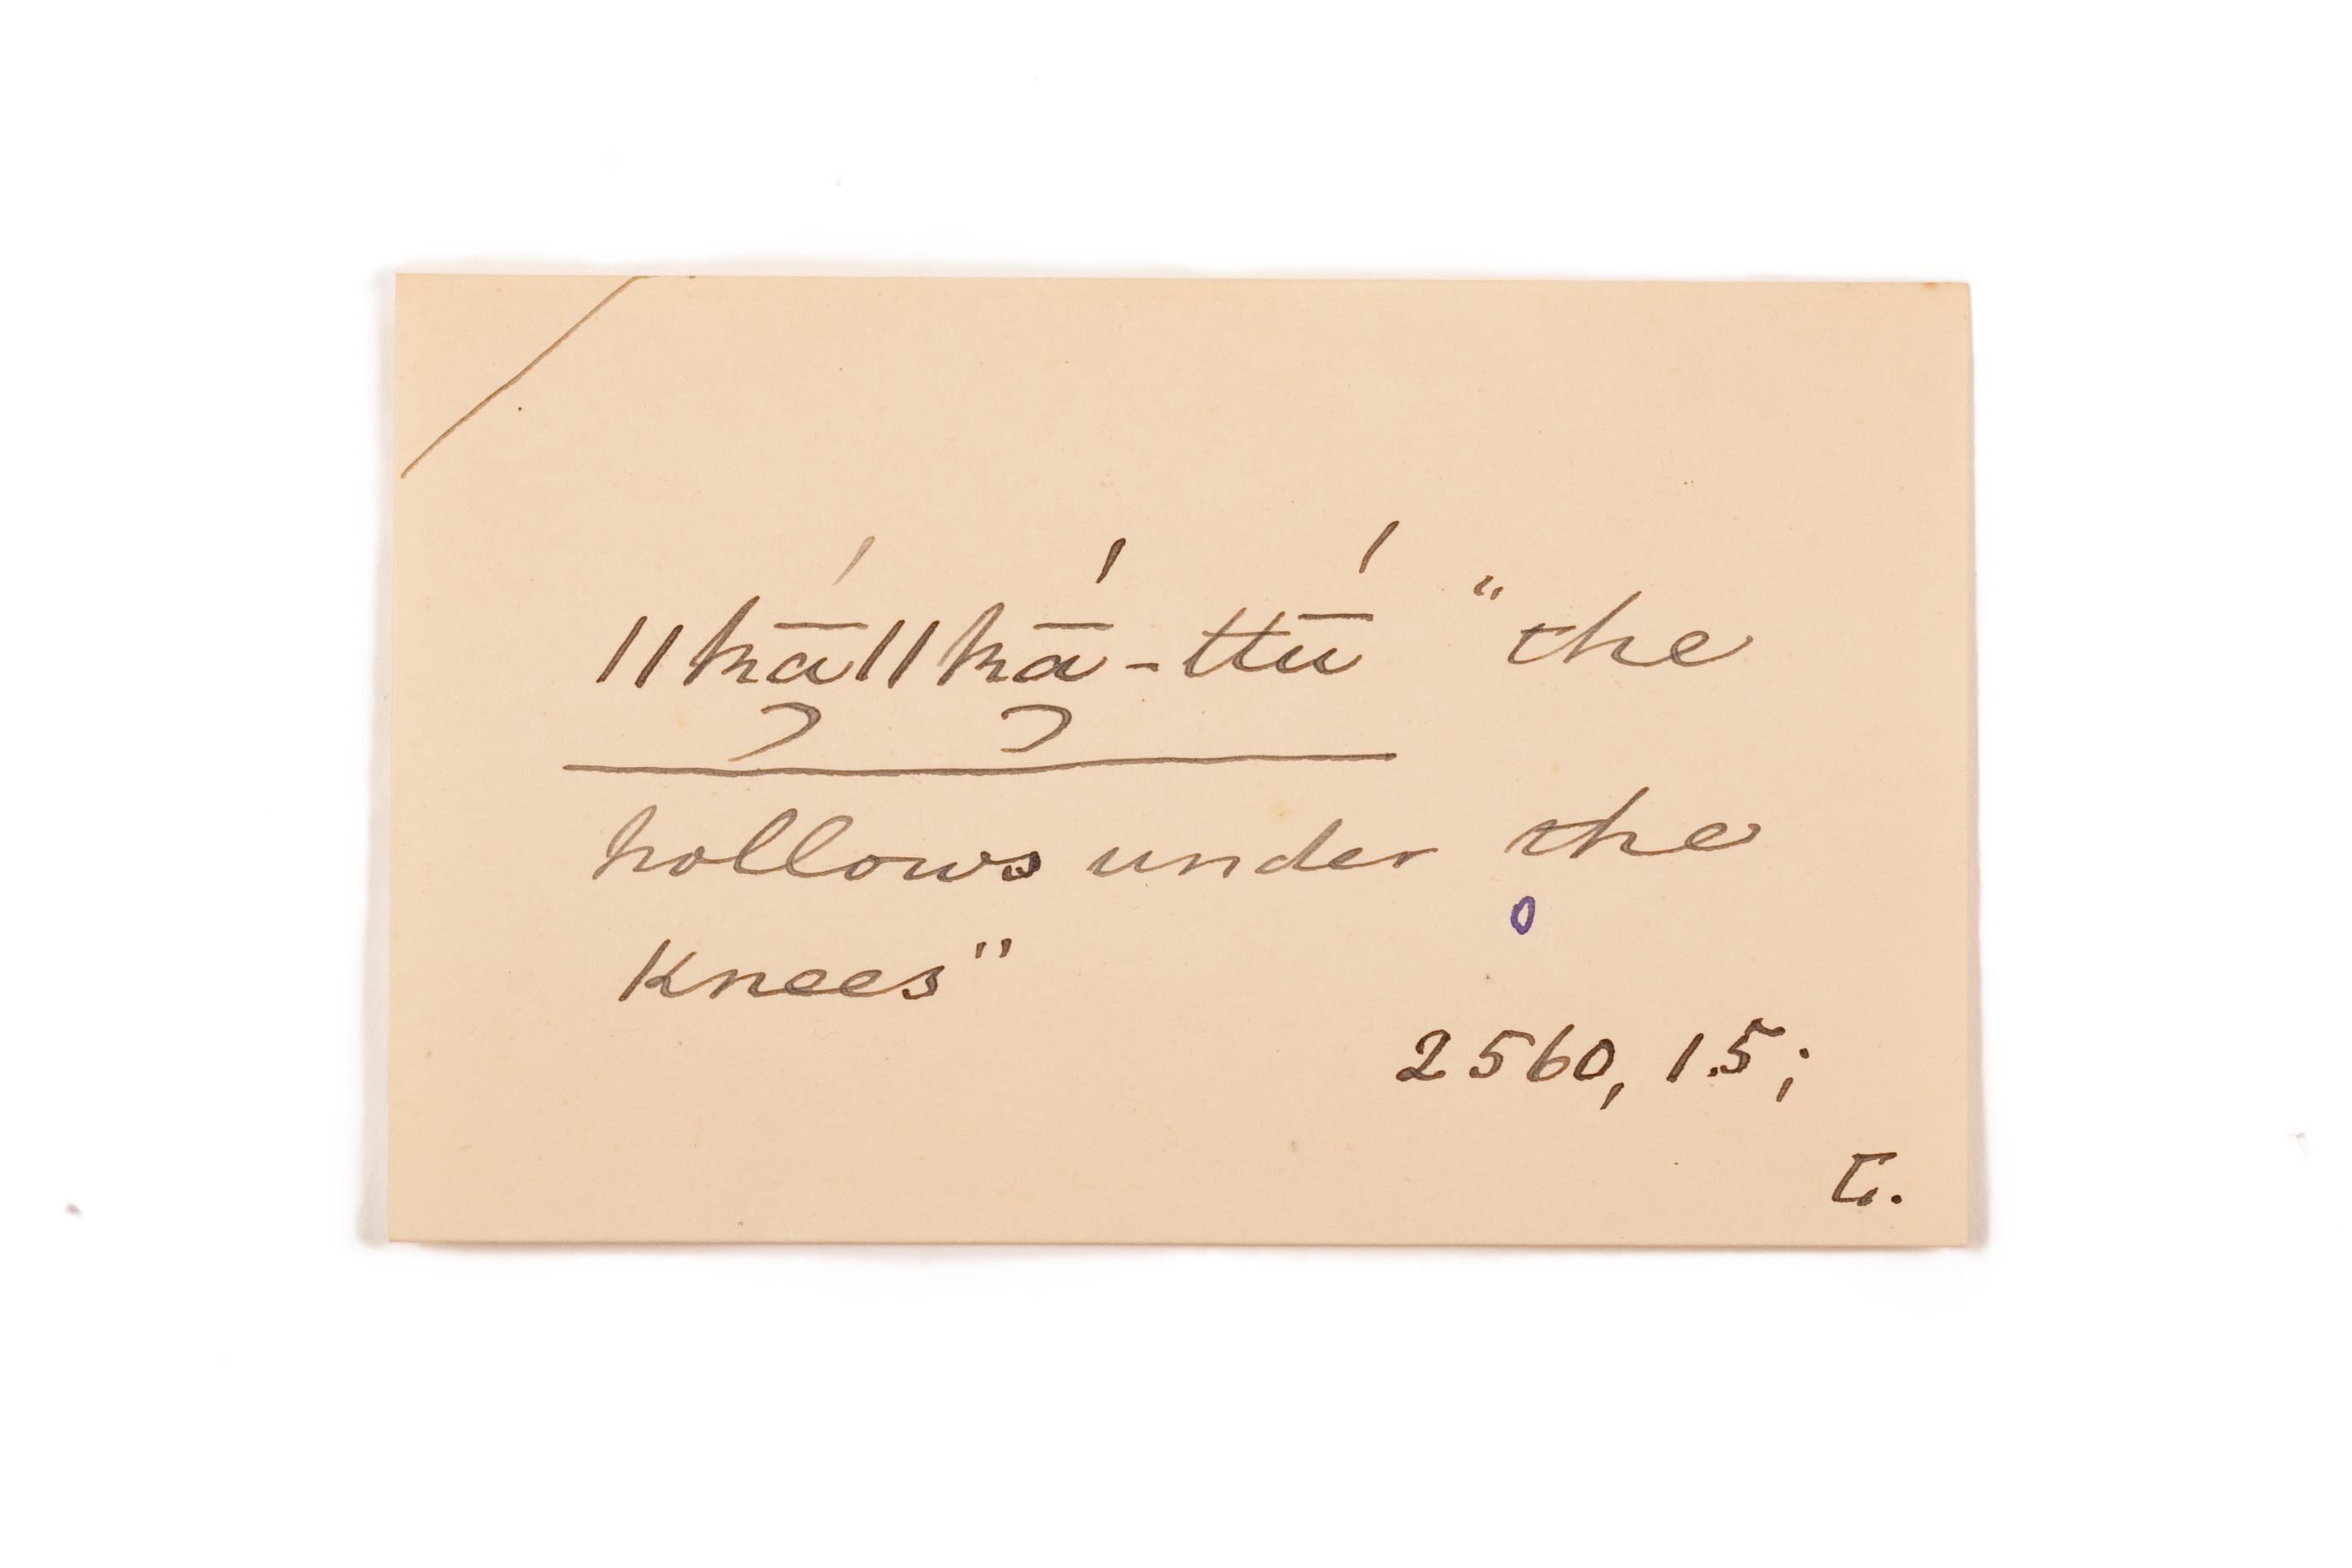 ǁkā̱́ǁkā̱́-ttū́ "the
hollows under the
knees"
2560, 15;
L.